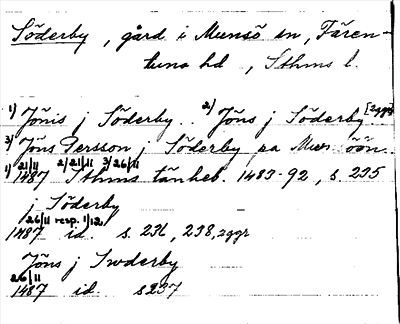 Söderby, gård i Munsö sn, Fären-
tuna hd, Sthms l.
1) Jönis j Söderby. 2) Jöns j Söderby [2ggr
3) Jöns Persson j Söderby pa Mun öön
1) 21/11 2/21/11 3/26/11
1487 Sthms tänkeb. 1483-92, s. 235
j Söderby
26/11 resp. 1/12
1487 id. s. 236, 238, 2ggr
Jöns j Swderby
26/11
1487 id. s 237